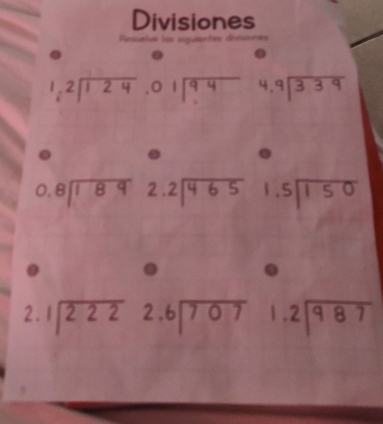 Divisiones
Resuelve las siguientes divisiones
1.2 124 .01 94 4.9 339
0.8 189 2.2 465 1.5 150
2.1 222 2.6 707 1.2 987